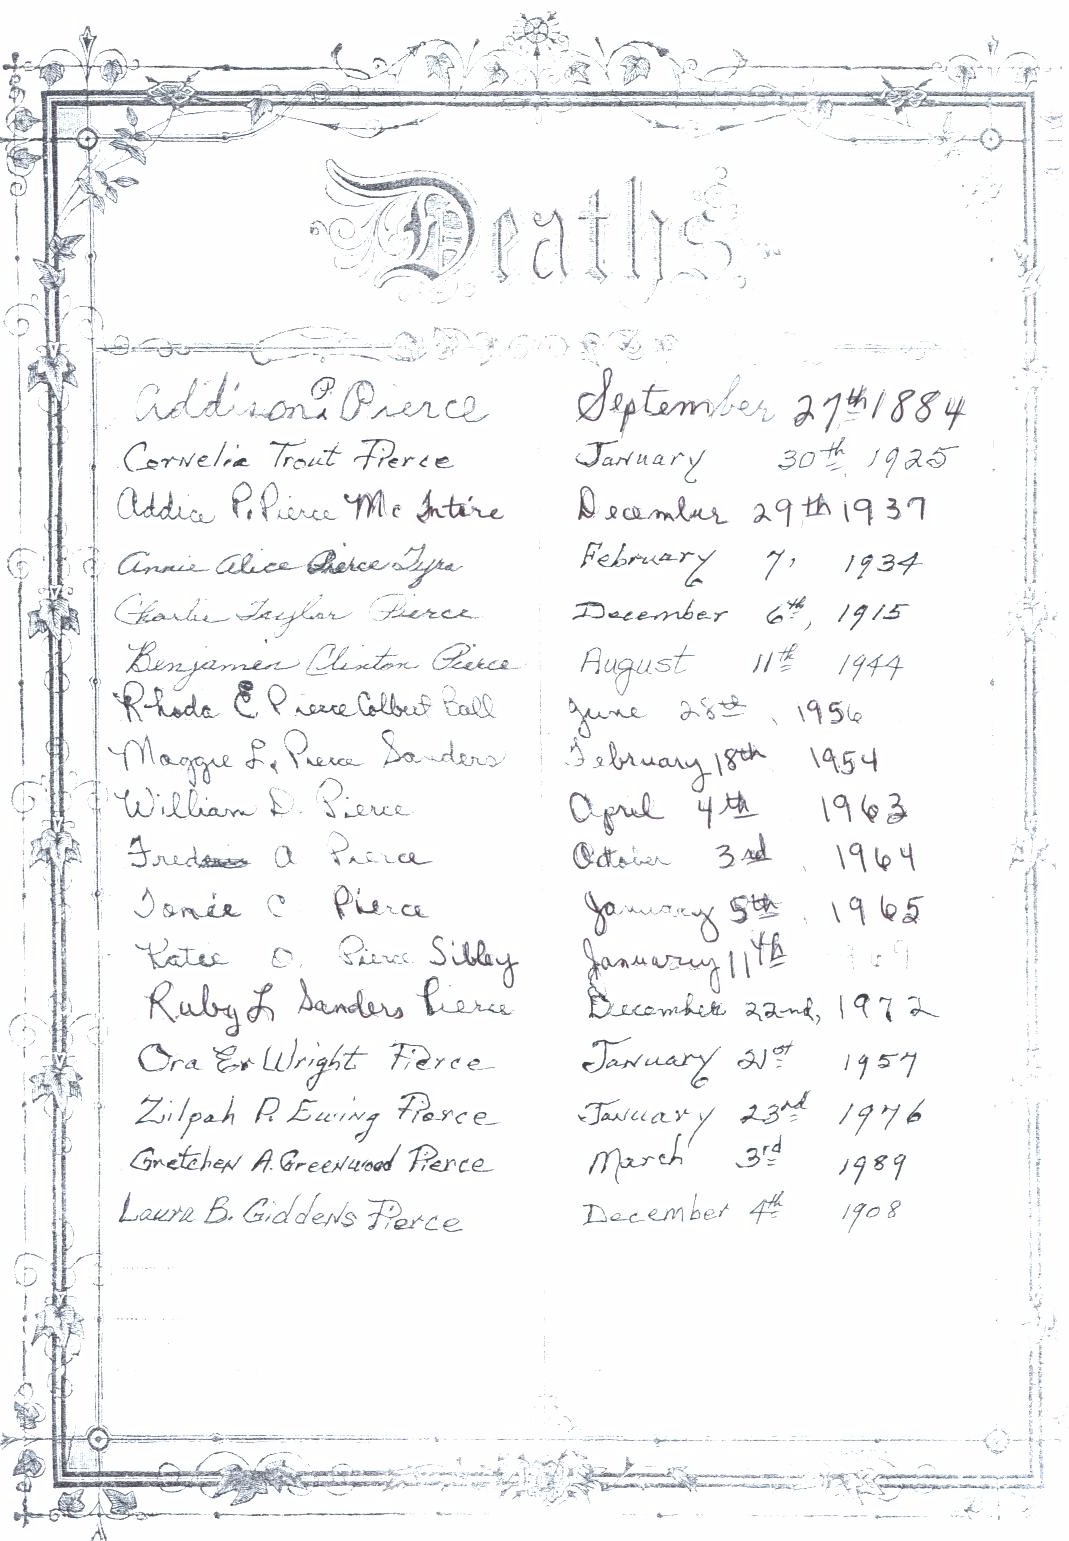 Deaths
Addison P. Pierce September 27th 1884
Cornelia Trout Pierce January 30th, 1925
Addie P. Pierce McIntire December 29th 1937
Annie Alice Pierce Tyra February 7, 1934
Charlie Taylor Pierce December 6th, 1915
Benjamin Clinton Pierce August 11th 1944
Rhoda E. Pierce Colbert Ball June 28th, 1956
Maggie L. Pierce Sanders February 18th 1954
William D. Pierce April 4th 1963
Fred A Pierce October 3rd, 1964
Tomie C Pierce January 5th, 1965
Katee O. Pierce Sibley January 11th
Ruby L Sanders Pierce December 22nd, 1972
Ora E. Wright Pierce January 21st 1957
Zilpah P. Ewing Pierce January 23rd 1976
Gretchen A. Greenwood Pierce March 3rd 1989
Laura B. Giddens Pierce December 4th 1908